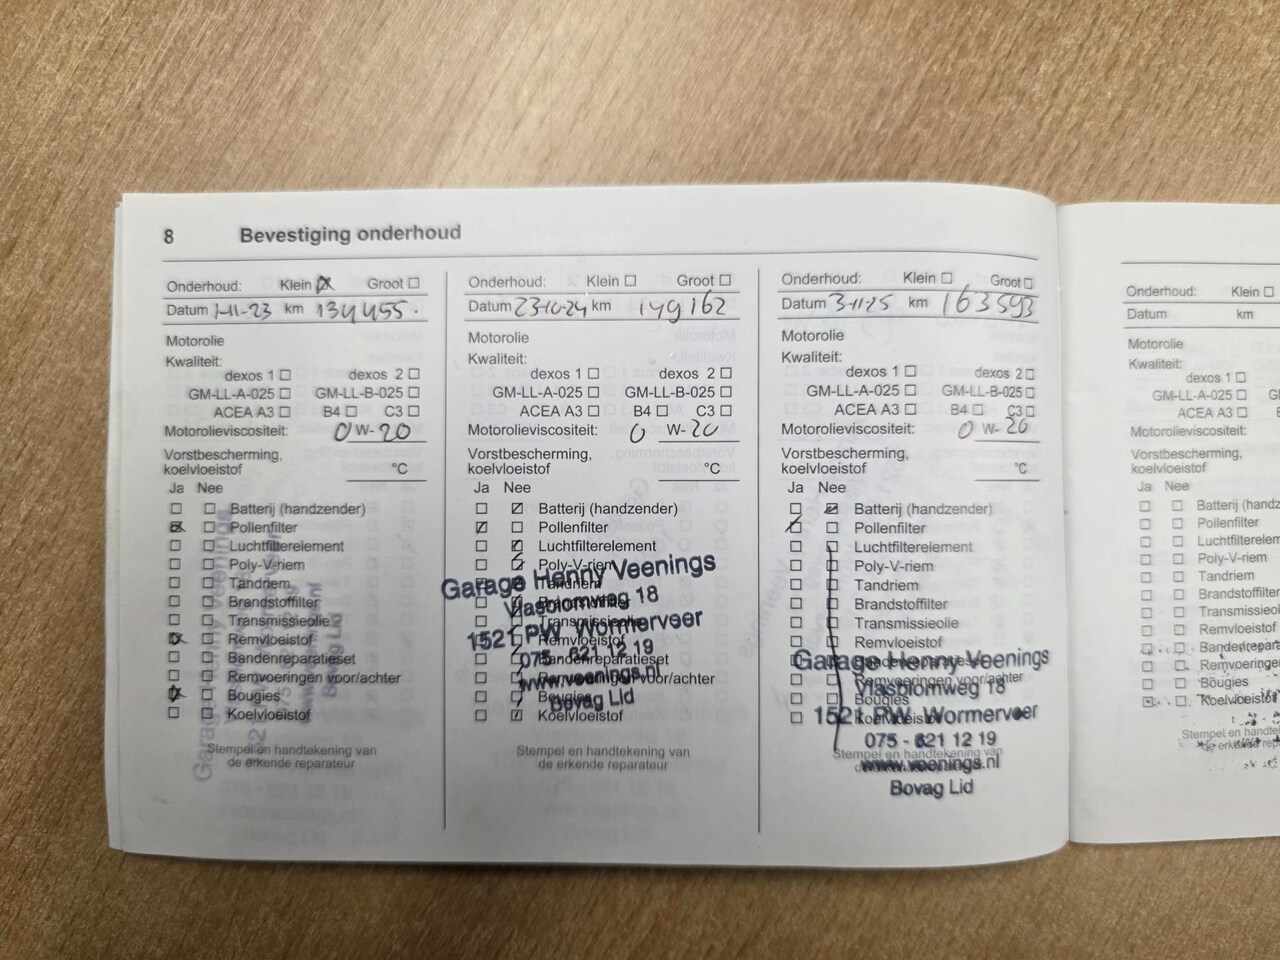 8 Bevestiging onderhoud
Onderhoud: Klein ☒ Groot ☐
Datum 1-11-23 km 134455.
Motorolie
Kwaliteit:
dexos 1 ☐ dexos 2 ☐
GM-LL-A-025 ☐ GM-LL-B-025 ☐
ACEA A3 ☐ B4 ☐ C3 ☐
Motorolieviscositeit: 0 W-20
Vorstbescherming,
koelvloeistof °C
Ja Nee
☐ ☐ Batterij (handzender)
☒ ☐ Pollenfilter
☐ ☐ Luchtfilterelement
☐ ☐ Poly-V-riem
☐ ☐ Tandriem
☐ ☐ Brandstoffilter
☐ ☐ Transmissieolie
☒ ☐ Remvloeistof
☐ ☐ Bandenreparatieset
☐ ☐ Remvoeringen voor/achter
☒ ☐ Bougies
☐ ☐ Koelvloeistof
Stempel en handtekening van
de erkende reparateur
Onderhoud: Klein ☐ Groot ☐
Datum 23-10-24 km 149162
Motorolie
Kwaliteit:
dexos 1 ☐ dexos 2 ☐
GM-LL-A-025 ☐ GM-LL-B-025 ☐
ACEA A3 ☐ B4 ☐ C3 ☐
Motorolieviscositeit: 0 W-20
Vorstbescherming,
koelvloeistof °C
Ja Nee
☐ ☑ Batterij (handzender)
☑ ☐ Pollenfilter
☐ ☑ Luchtfilterelement
☐ ☑ Poly-V-riem
Garage Henny Veenings
Vlasblomweg 18
1521 PW Wormerveer
075 - 621 12 19
www.veenings.nl
Bovag Lid
Tandriem
Transmissieolie
Remvloeistof
Bandenreparatieset
Remvoeringen voor/achter
Bougies
☐ ☑ Koelvloeistof
Stempel en handtekening van
de erkende reparateur
Onderhoud: Klein ☐ Groot ☐
Datum 3-11-25 km 163593
Motorolie
Kwaliteit:
dexos 1 ☐ dexos 2 ☐
GM-LL-A-025 ☐ GM-LL-B-025 ☐
ACEA A3 ☐ B4 ☐ C3 ☐
Motorolieviscositeit: 0 W-20
Vorstbescherming,
koelvloeistof °C
Ja Nee
☐ ☑ Batterij (handzender)
☑ ☐ Pollenfilter
☐ ☐ Luchtfilterelement
☐ ☐ Poly-V-riem
☐ ☐ Tandriem
☐ ☐ Brandstoffilter
☐ ☐ Transmissieolie
☐ ☐ Remvloeistof
Garage Henny Veenings
Vlasblomweg 18
1521 PW Wormerveer
075 - 621 12 19
www.veenings.nl
Bovag Lid
Remvoeringen voor/achter
Bougies
Koelvloeistof
Stempel en handtekening van
Onderhoud: Klein ☐
Datum km
Motorolie
Kwaliteit:
dexos 1 ☐
GM-LL-A-025 ☐
ACEA A3 ☐
Motorolieviscositeit:
Vorstbescherming,
koelvloeistof
Ja Nee
☐ ☐ Batterij
☐ ☐ Pollenfilter
☐ ☐ Luchtfilterelem
☐ ☐ Poly-V-riem
☐ ☐ Tandriem
☐ ☐ Brandstoffilter
☐ ☐ Transmissieo
☐ ☐ Remvloeistof
☐ ☐ Bandenrepara
☐ ☐ Remvoeringe
☐ ☐ Bougies
☐ ☐ Koelvloeistof